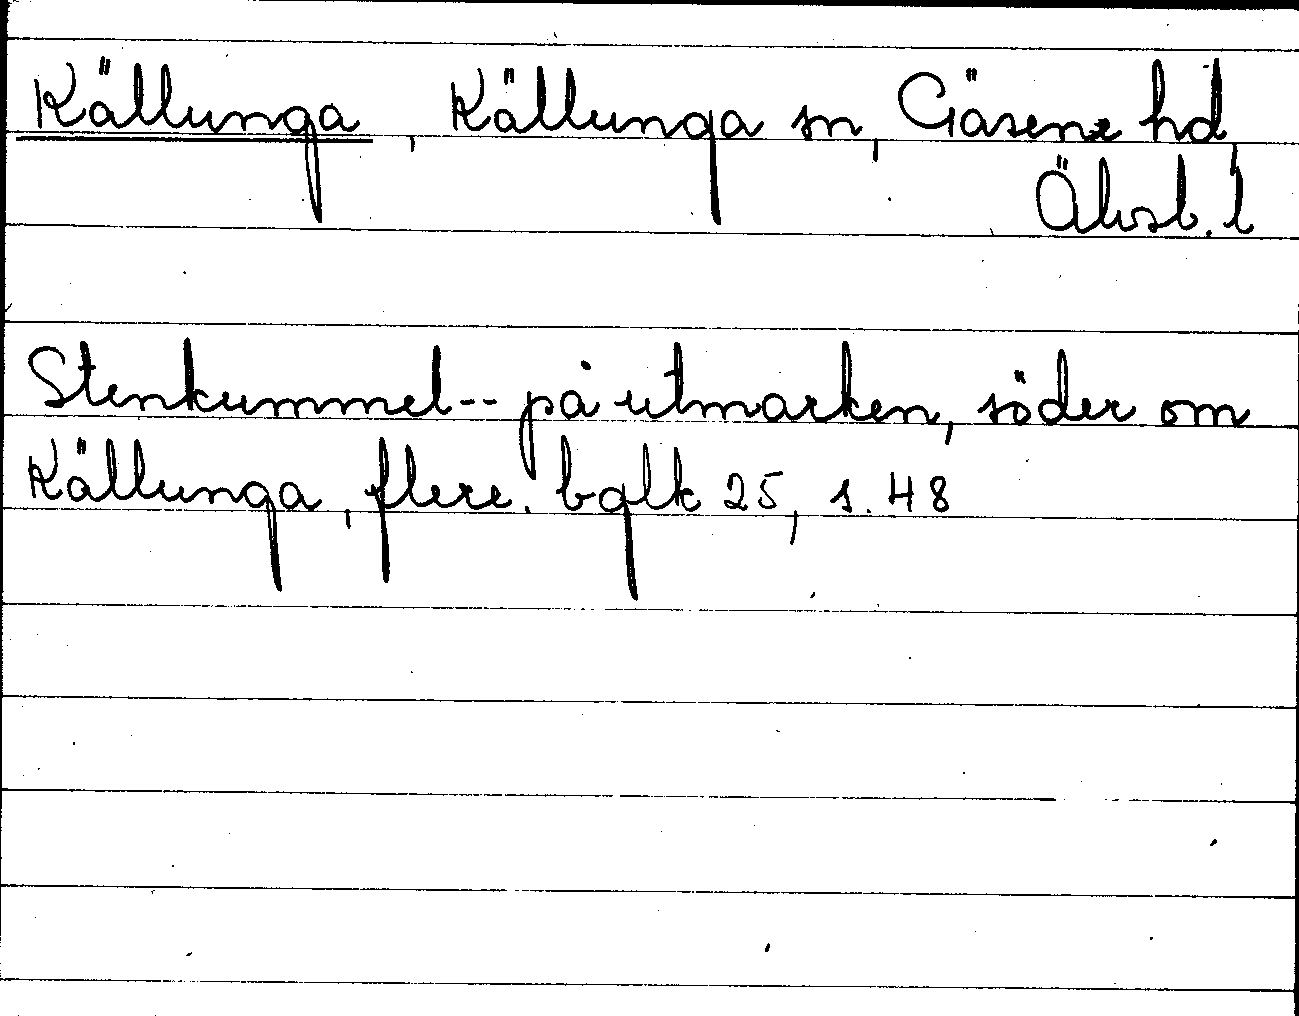 Källunga, Källunga sn, Gäsene hd,
Älvsb. l
Stenkummel-- på utmarken, söder om
Källunga, flere. bglk 25, s. 48